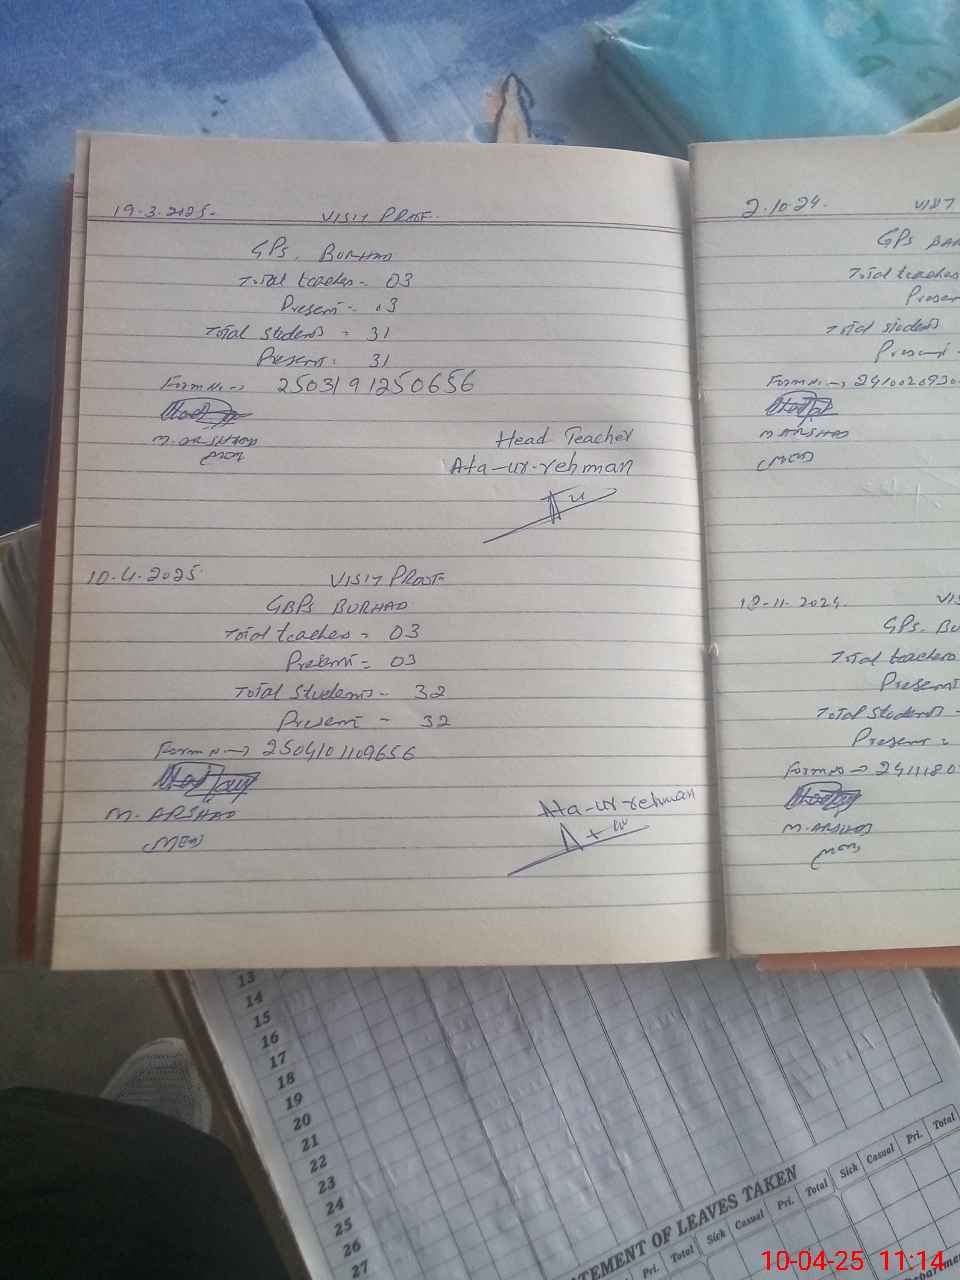 19.3.2025.
VISIT PROOF.
GPS. BURHAD
Total teaches - 03
Present - 03
Total students = 31
Present = 31
Form No → 2503191250656
M. ARSHAD
(MEA)
Head Teacher
Ata-ur-rehman
10.4.2025.
VISIT PROOF
GBPS BURHAD
Total teaches = 03
Present = 03
Total Students - 32
Present - 32
Form N → 2504101109656
M. ARSHAD
(MEA)
Ata-ur-rehman
2.10.24.
VISIT
GPS
Total teaches
Presen
Total student
Present -
Form No. →
M ARSHAD
(MEA)
18-11-2024.
VIS
GPS. BU
Total teachers
Present
Total Students -
Present =
Form No →
M. ARSHAD
(MEA)
13
14
15
16
17
18
19
20
21
22
23
24
25
26
27
TEMENT OF LEAVES TAKEN
Pri. Total Sick Casual Pri. Total Sick Casual Pri. Total
10-04-25 11:14